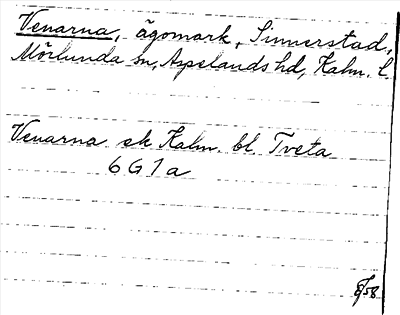 Venarna, ägomark, Sinnerstad,
Mörlunda sn, Aspelands hd, Kalm. l.
Venarna ek Kalm. bl Tveta
6 G 1 a
58